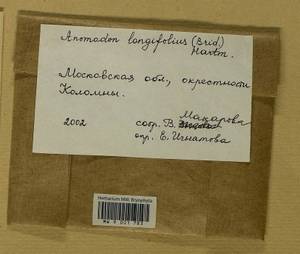 Anomodon longifolius (Brid.)
Hartm.
Московская обл., окрестности
Коломны.
Макарова
2002 собр. В.
опр. Е. Игнатова
Herbarium MW, Bryophyta